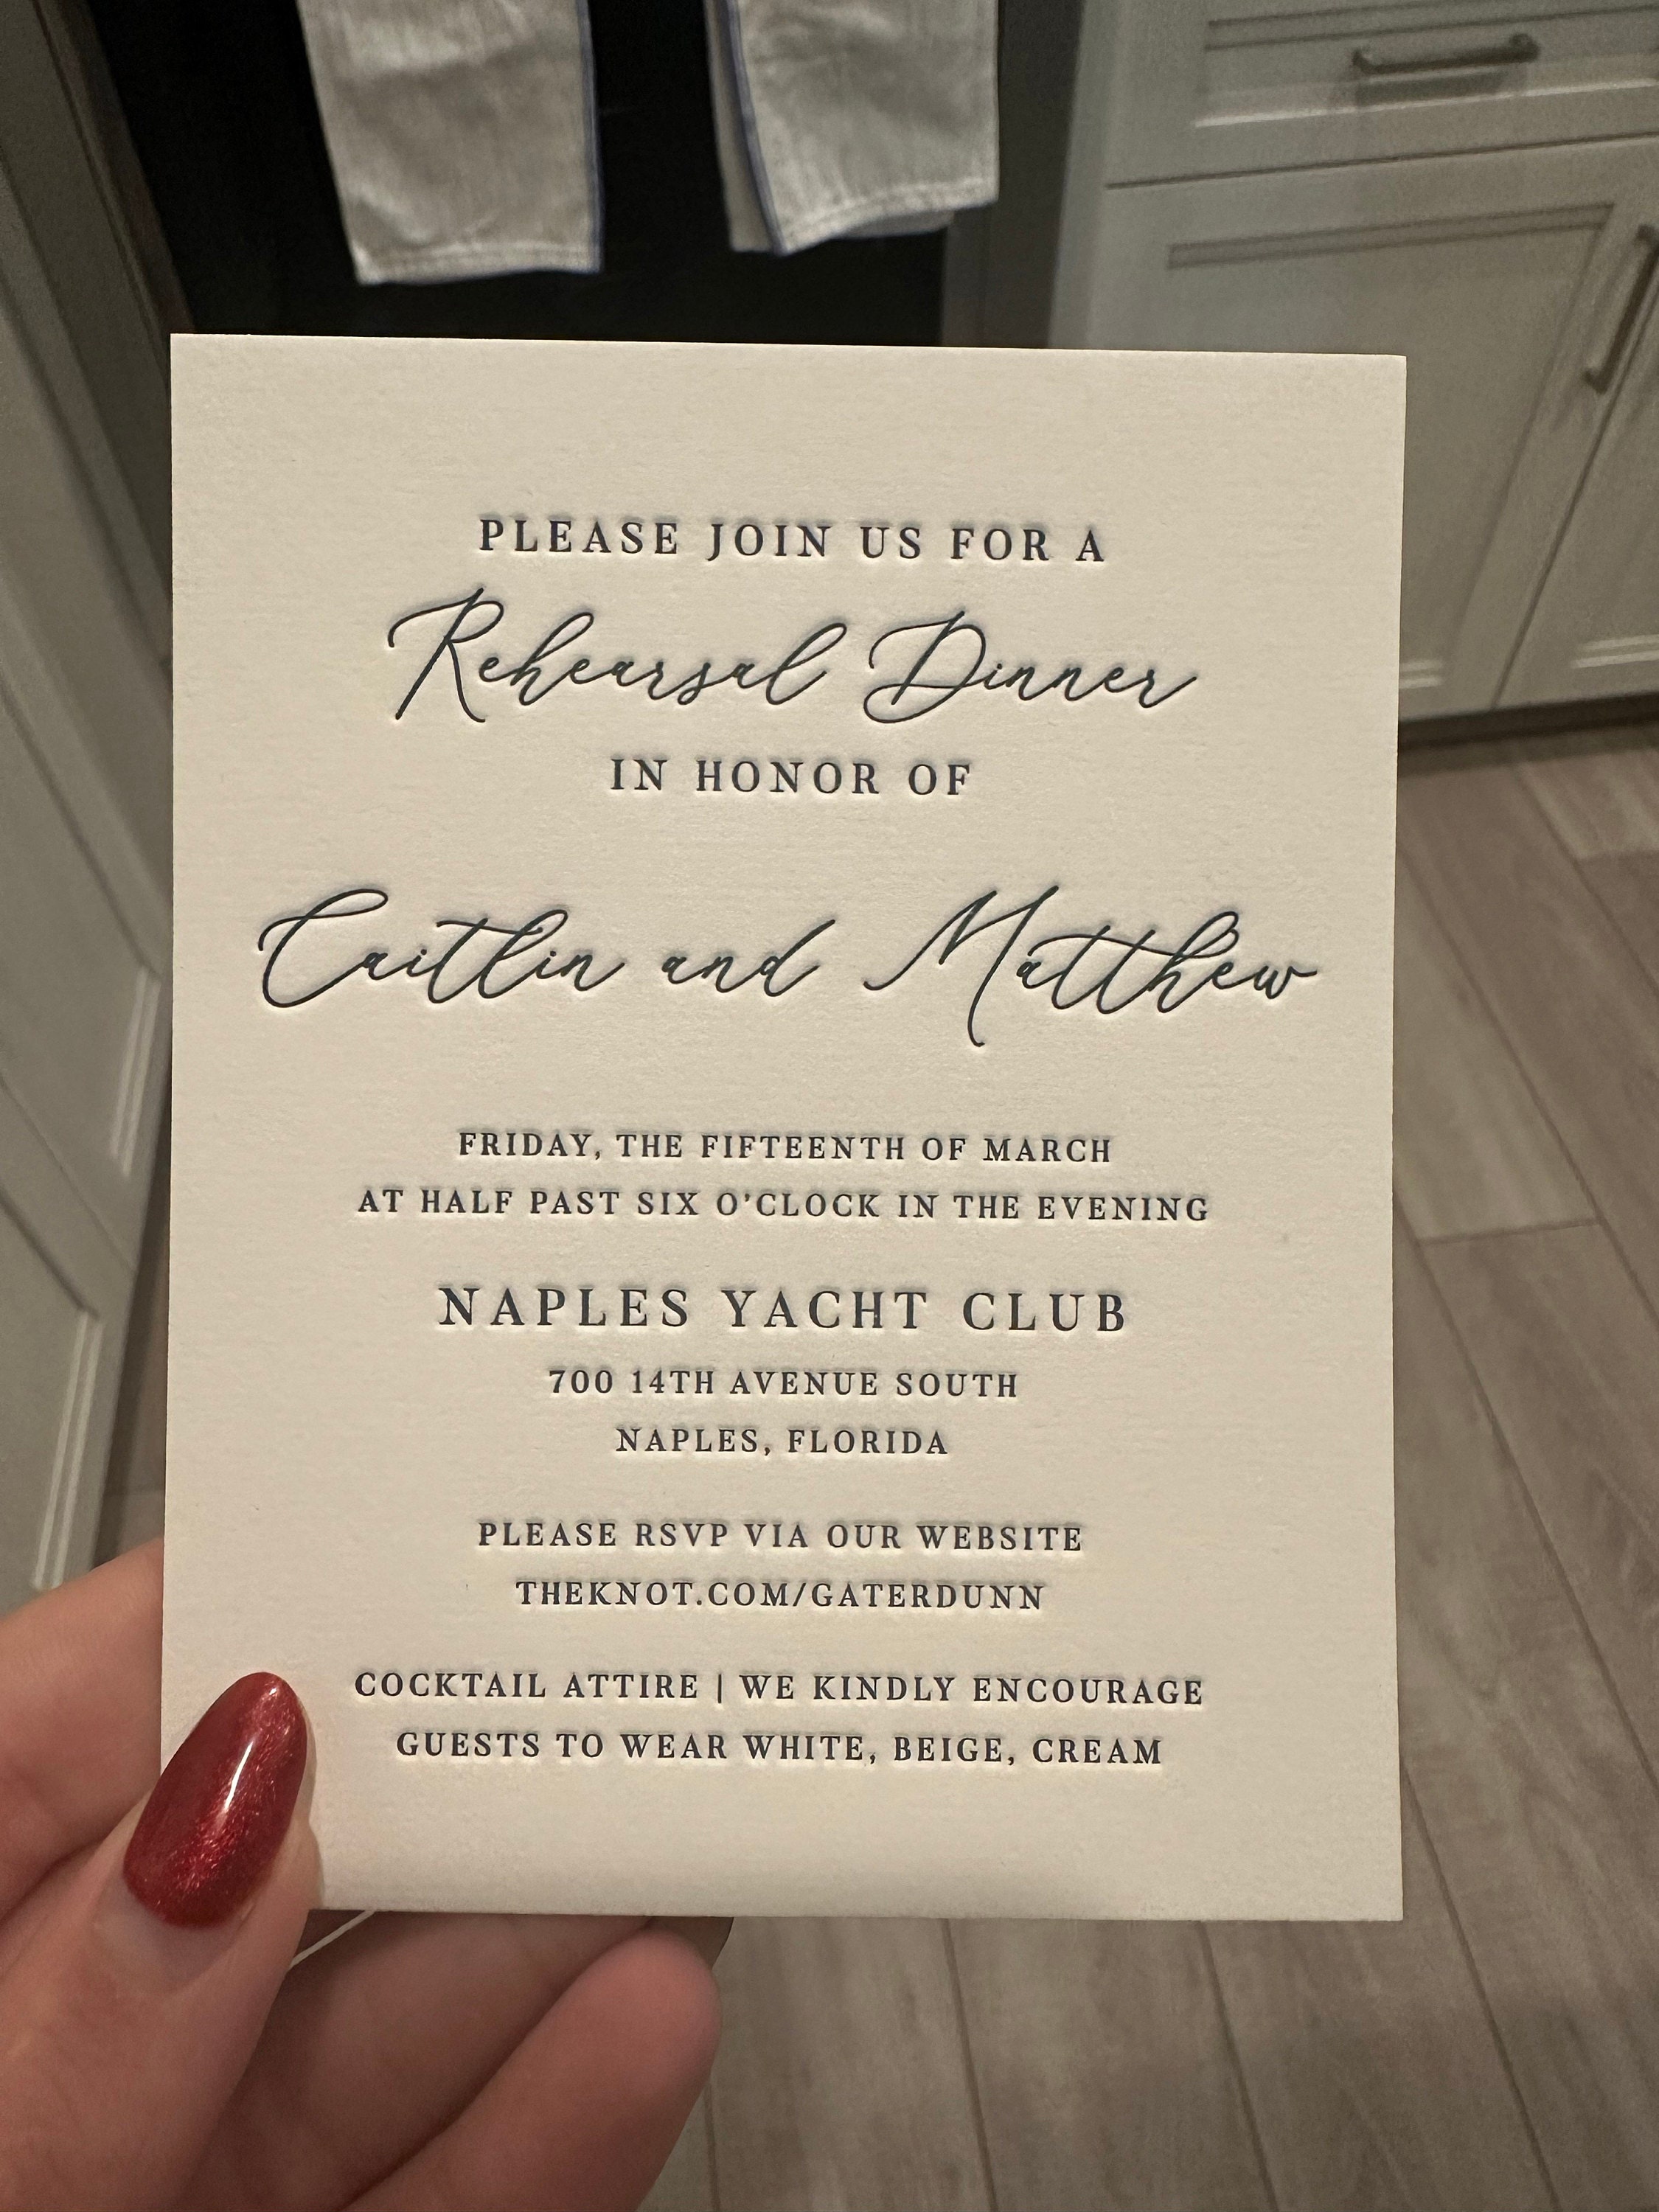 PLEASE JOIN US FOR A
Rehearsal Dinner
IN HONOR OF
Caitlin and Matthew
FRIDAY, THE FIFTEENTH OF MARCH
AT HALF PAST SIX O'CLOCK IN THE EVENING
NAPLES YACHT CLUB
700 14TH AVENUE SOUTH
NAPLES, FLORIDA
PLEASE RSVP VIA OUR WEBSITE
THEKNOT.COM/GATERDUNN
COCKTAIL ATTIRE | WE KINDLY ENCOURAGE
GUESTS TO WEAR WHITE, BEIGE, CREAM